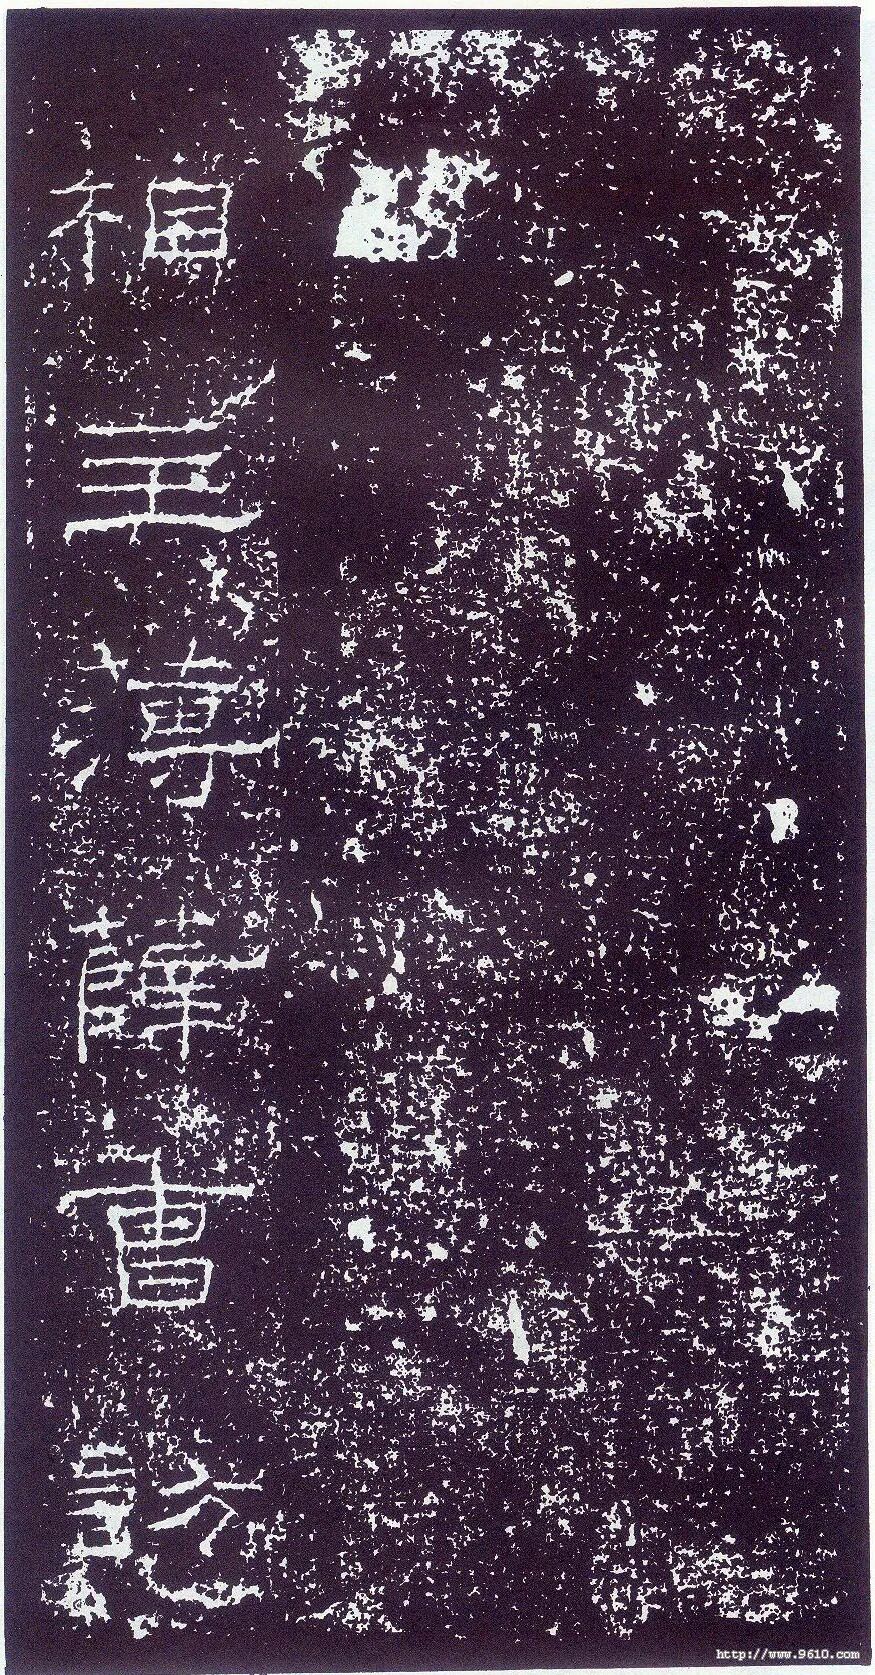 相主簿薛曹訪
http://www.9610.com